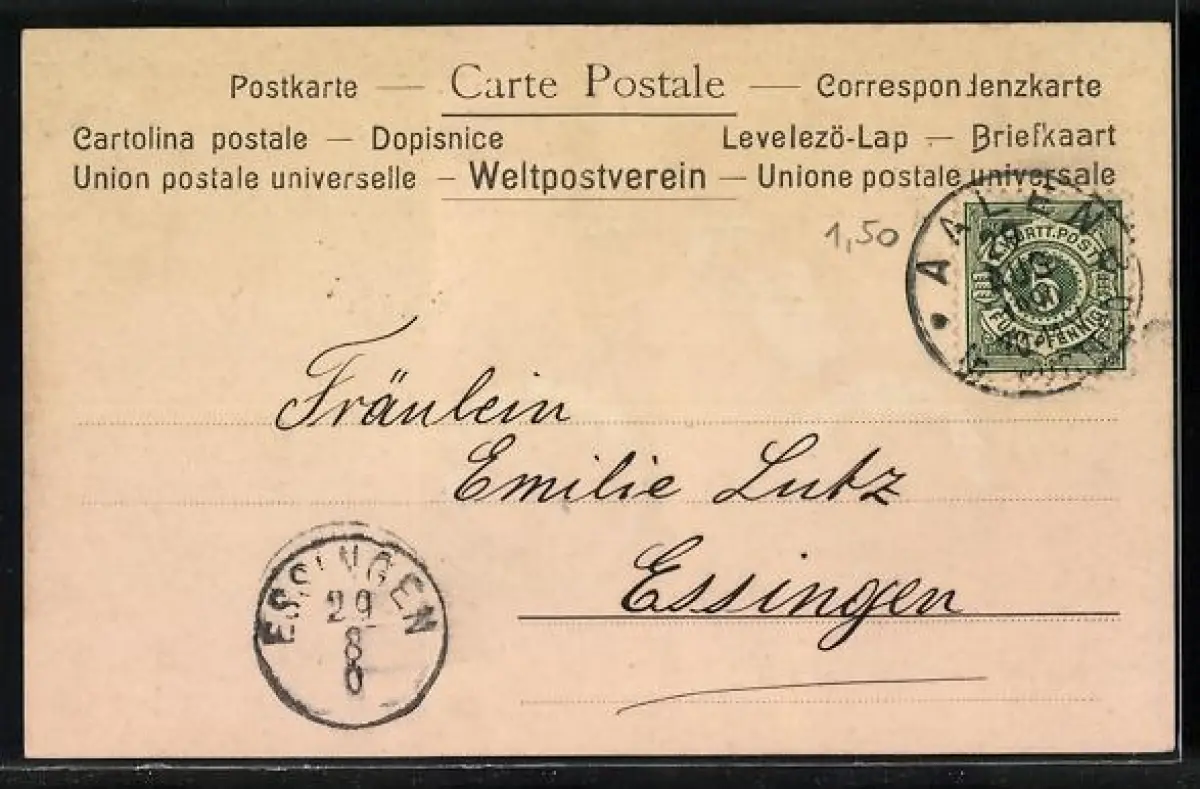 Postkarte — Carte Postale — Correspondenzkarte
Cartolina postale — Dopisnice Levelezö-Lap — Briefkaart
Union postale universelle — Weltpostverein — Unione postale universale
1,50
AALEN
K. WÜRTT. POST
5
FÜNF PFENNIG
Fräulein
Emilie Lutz
Essingen
ESSINGEN
29
8
0